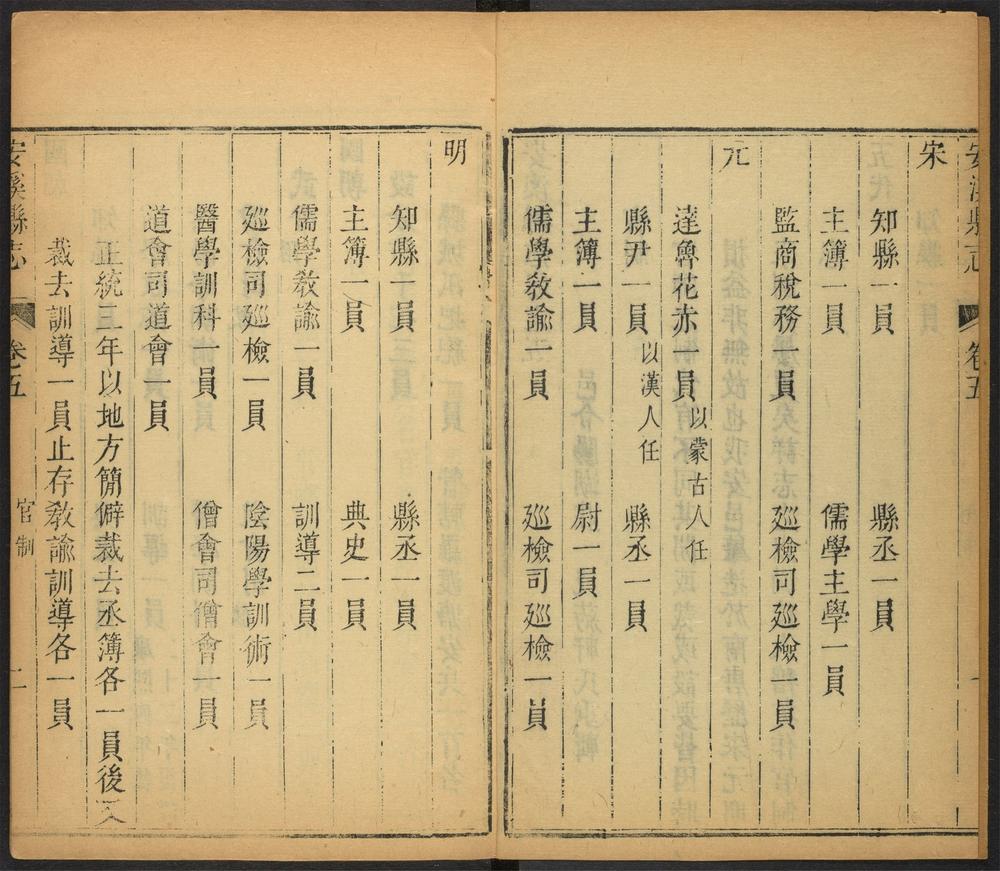 安溪縣志 卷五 一
宋
知縣一員 縣丞一員
主簿一員 儒學主學一員
監商稅務一員 廵檢司廵檢一員
元
達魯花赤一員 以蒙古人任
縣尹一員 以漢人任 縣丞一員
主簿一員 尉一員
儒學敎諭一員 廵檢司廵檢一員
明
知縣一員 縣丞一員
主簿一員 典史一員
儒學敎諭一員 訓導二員
廵檢司廵檢一員 陰陽學訓術一員
醫學訓科一員 僧會司僧會一員
道會司道會一員
正統三年以地方簡僻裁去丞簿各一員後又
裁去訓導一員止存敎諭訓導各一員
安溪縣志 卷五 官制 二